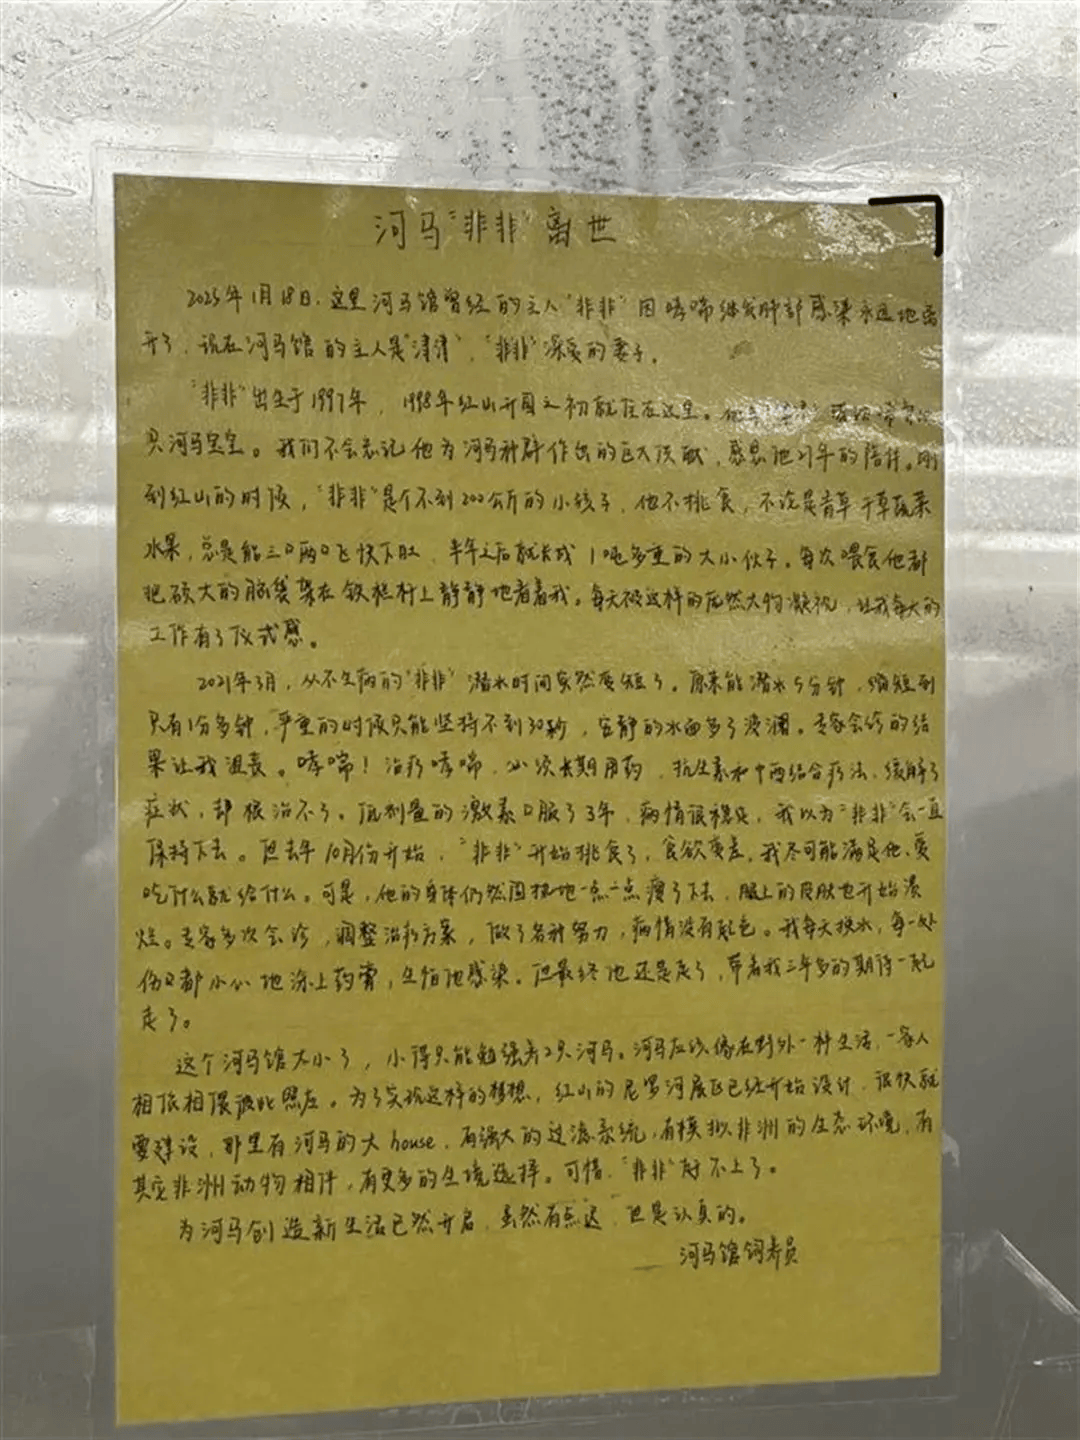 河马“非非”离世
2025年1月18日，这里河马馆曾经的主人“非非”因哮喘继发肺部感染永远地离
开了，现在河马馆的主人是“津津”，“非非”深爱的妻子。
“非非”出生于1997年，1998年红山开园之初就住在这里。他
只河马宝宝。我们不会忘记他为河马种群作出的巨大贡献，感恩他27年的陪伴。刚
到红山的时候，“非非”是个不到200公斤的小孩子，他不挑食，不论是青草干草蔬菜
水果，总是能三口两口飞快下肚，半年之后就长成1吨多重的大小伙子。每次喂食他都
把硕大的脑袋架在铁栏杆上静静地看着我。每天被这样的庞然大物凝视，让我每天的
工作有了仪式感。
2021年3月，从不生病的“非非”潜水时间突然变短了。原来能潜水5分钟，缩短到
只有1分多钟，严重的时候只能坚持不到30秒，安静的水面多了波澜。专家会诊的结
果让我沮丧。哮喘！治疗哮喘，必须长期用药，抗生素和中西结合疗法，缓解了
症状，却根治不了。低剂量的激素口服了3年，病情很稳定，我以为“非非”会一直
保持下去。但去年10月份开始，“非非”开始挑食了，食欲变差，我尽可能满足他，爱
吃什么就给什么。可是，他的身体仍然固执地一点一点瘦了下去，腿上的皮肤也开始溃
烂。专家多次会诊，调整治疗方案，做了各种努力，病情没有起色。我每天换水，每一处
伤口都小心地涂上药膏，生怕他感染。但最终他还是走了，带着我三年多的期待一起
走了。
这个河马馆太小了，小得只能勉强养2只河马。河马应该像在野外一样生活，一家人
相依相偎彼此照应。为了实现这样的梦想，红山的尼罗河展区已经开始设计，很快就
要建设，那里有河马的大house，有强大的过滤系统，有模拟非洲的生态环境，有
其它非洲动物相伴，有更多的生境选择。可惜，“非非”赶不上了。
为河马创造新生活已然开启，虽然有点迟，但是认真的。
河马馆饲养员